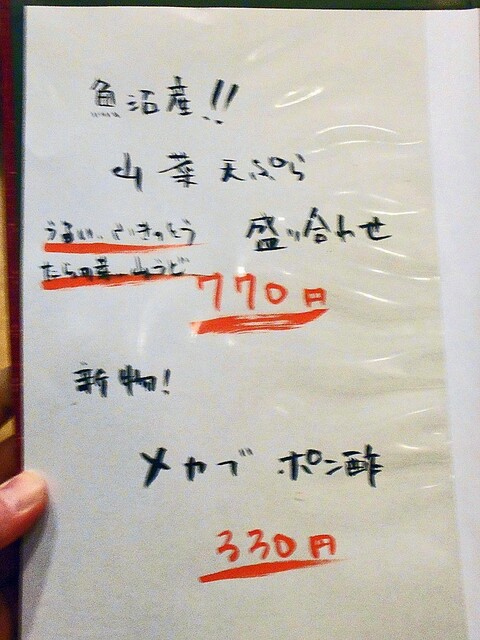 魚沼産!!
山菜天ぷら
盛り合わせ
うるい、ふきのとう
たらの芽、山うど
770円
新物!
メカブ ポン酢
330円